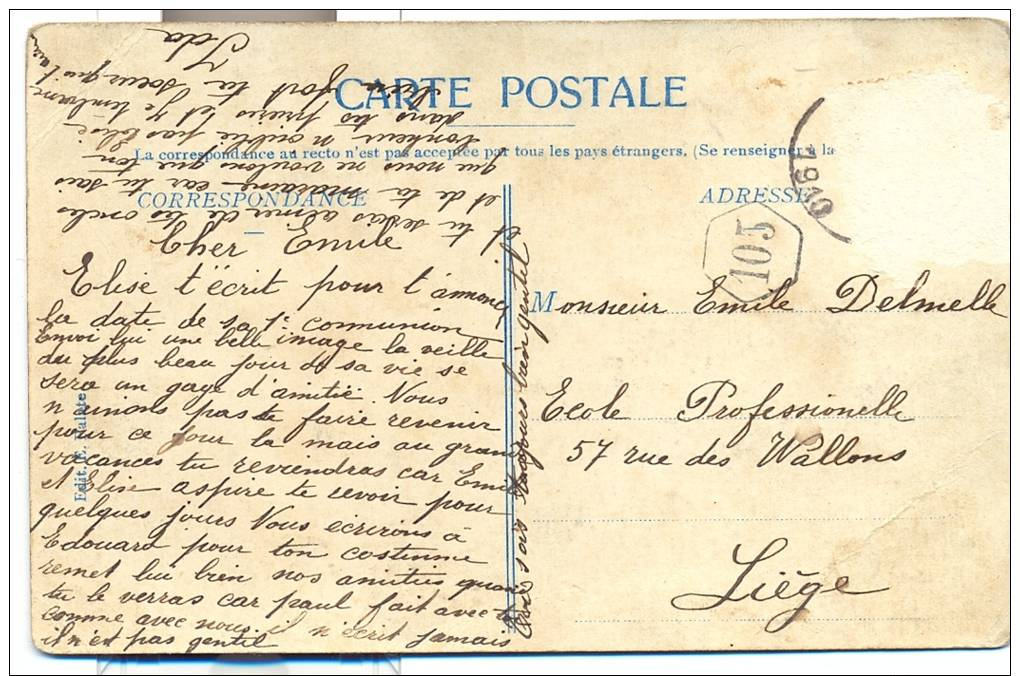 CARTE POSTALE
La correspondance au recto n'est pas acceptée par tous les pays étrangers. (Se renseigner à la
CORRESPONDANCE
ADRESSE
1910
105
Cher Emile
Elise t'écrit pour t'annoncer
la date de sa 1e communion
Envoi lui une belle image la veille
du plus beau jour de sa vie se
sera un gage d'amitié. Nous
n'aimons pas te faire revenir
pour ce jour la mais au grand
vacances tu reviendras car Emile
et Elise aspire te revoir pour
quelques jours Nous écrirons à
Edouard pour ton costume
remet lui bien nos amitiés quand
tu le verras car paul fait avec toi
comme avec nous il n'écrit jamais
il n'est pas gentil
sois toujours bien gentil
et tu seras aimer de tes oncles
et de ta marraine car tu sais
que nous ne voulons que ton
bonheur n'oublie pas Elise
dans tes prières et Je t'embrasse
bien fort ta soeur qui t'aime
Ida
Monsieur Emile Delmelle
Ecole Professionelle
57 rue des Wallons
Liège
Edit.